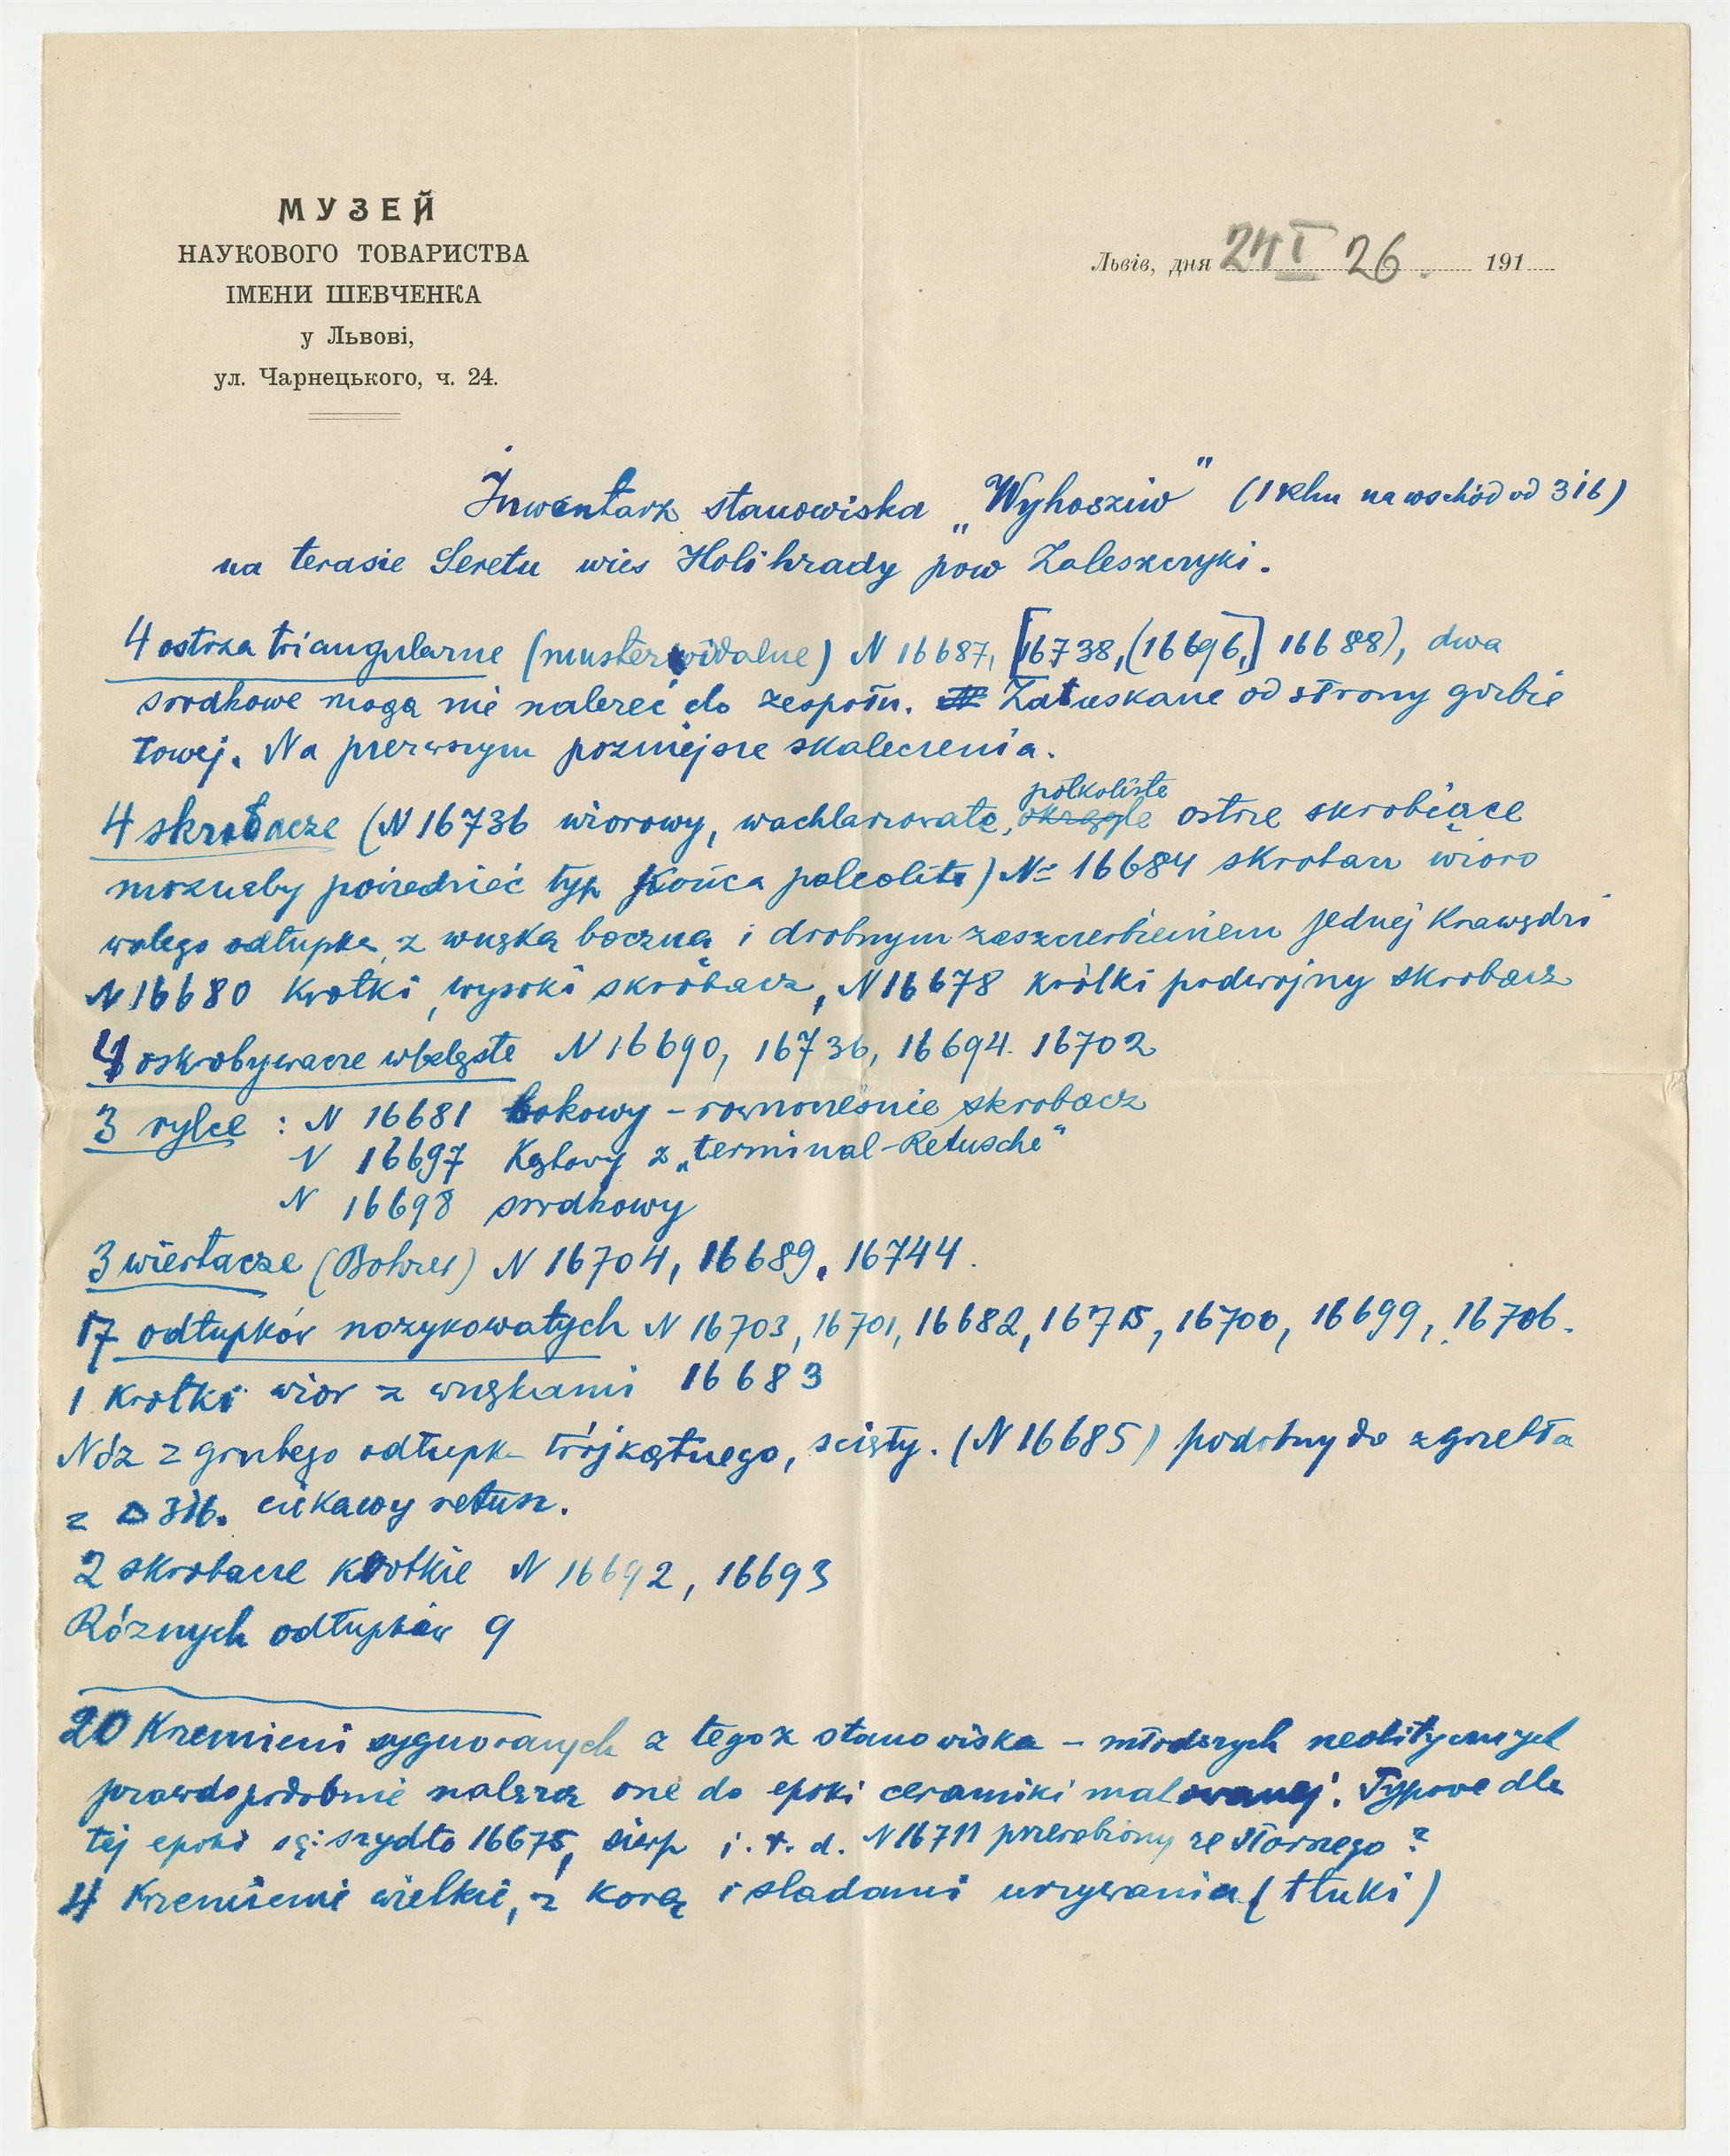 МУЗЕЙ
НАУКОВОГО ТОВАРИСТВА
ІМЕНИ ШЕВЧЕНКА
у Львові,
ул. Чарнецького, ч. 24.
Львів, дня 24 I 26. 191
Inwentarz stanowiska „Wyhosziw" (1 klm na wschód od 316)
na terasie Seretu wieś Holihrady pow Zaleszczyki.
4 ostrza triangularne (musteroidalne) N 16687, [16738, (16696,] 16688), dwa
srodkowe mogą nie należeć do zespołu. Załuskane od strony grzbie
towej. Na pierwszym pozniejsze skaleczenia.
4 skrobacze (N 16736 wiorowy, wachlarzowate, okrągłe półkoliste ostrze skrobiące
moznaby poiredzieć typ końca paleolitu) N= 16684 skrobacz wioro
watego odłupka, z wnęką boczną i drobnym zaszczerbieniem jednej krawędzi
N 16680 krotki, wysoki skrobacz, N 16678 królki podwojny skrobacz
4 oskrobywacze wklęste N 16690, 16736, 16694. 16702
3 rylce : N 16681 bokowy – rownoneśnie skrobacz
N 16697 Kątowy z „terminal-Retusche"
N 16698 srodkowy
3 wiertacze (Bohrer) N 16704, 16689, 16744.
17 odłupków nozykowatych N 16703, 16701, 16682, 16715, 16700, 16699, 16706.
1 krotki wior z wnękami 16683
Nóz z grubego odłupk trójkątnego, ścięty. (N 16685) podobny do zgrzebła
z Δ 316. ciekawy retusz.
2 skrobacze krotkie N 16692, 16693
Róznych odłupków 9
20 Krzemieni sygnowanych z tegoz stanowiska – młodszych neolitycznych
prawdopodobnie nalezą one do epoki ceramiki malowanej. Typowe dla
tej epoki są: szydło 16675, sierp i. t. d. N 16711 przerobiony ze starszego ?
4 Krzemienie wielkie, z korą i sladami urzywania (tłuki)